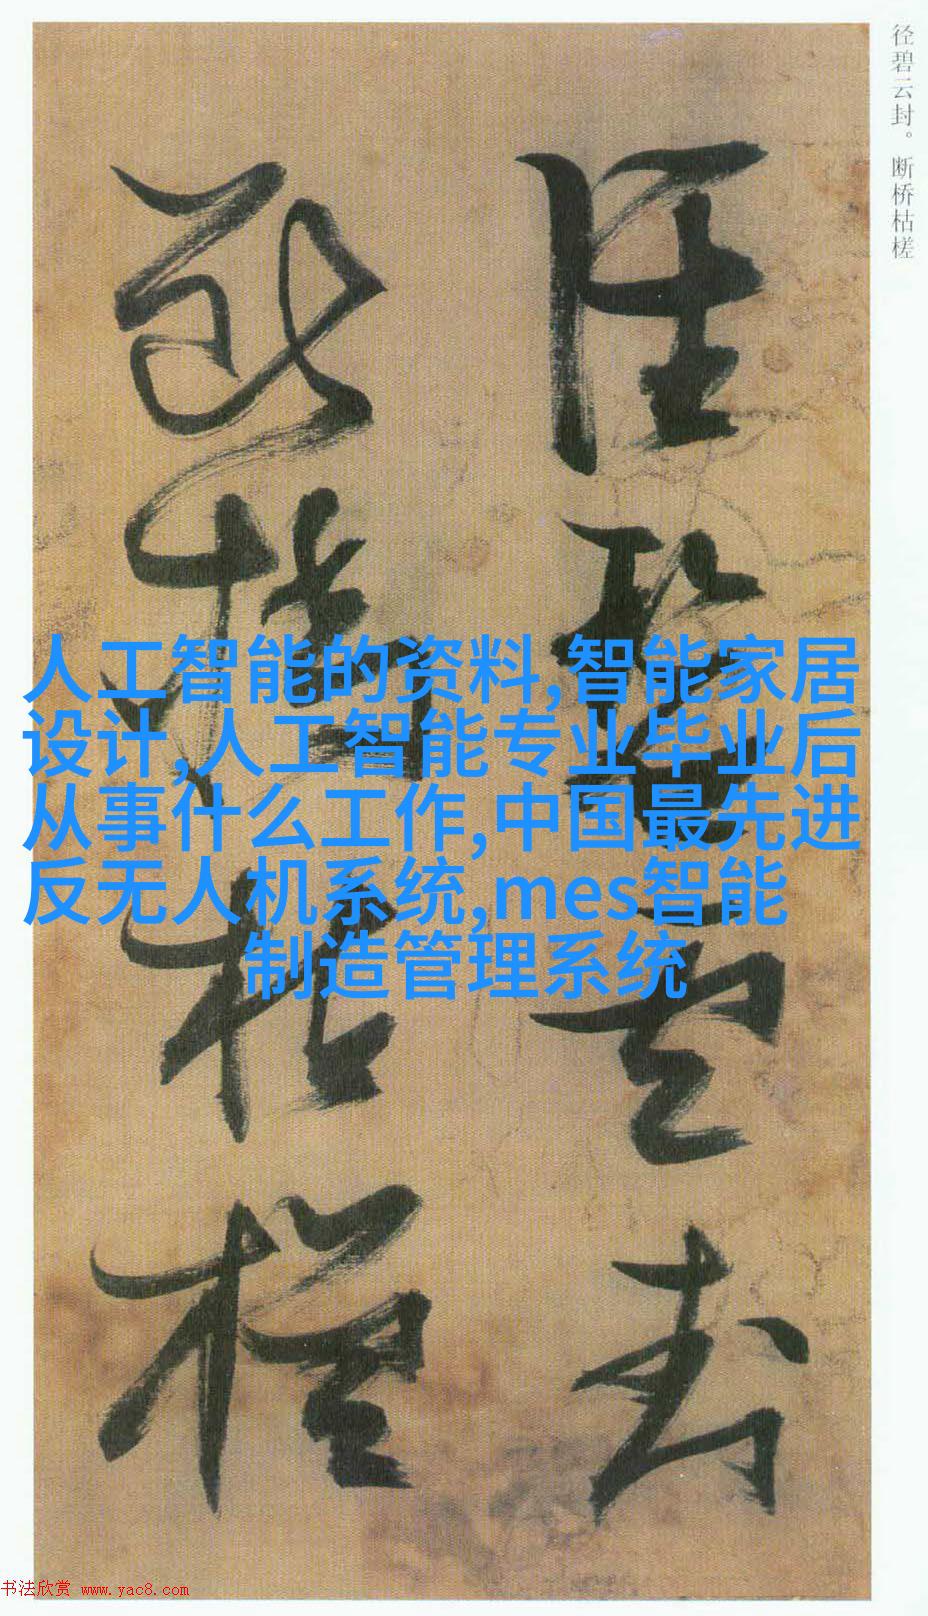 径碧云封。断桥枯槎
径碧云封
断桥枯槎
人工智能的资料,智能家居
设计,人工智能专业毕业后
从事什么工作,中国最先进
反无人机系统,mes智能
制造管理系统
书法欣赏 www.yac8.com